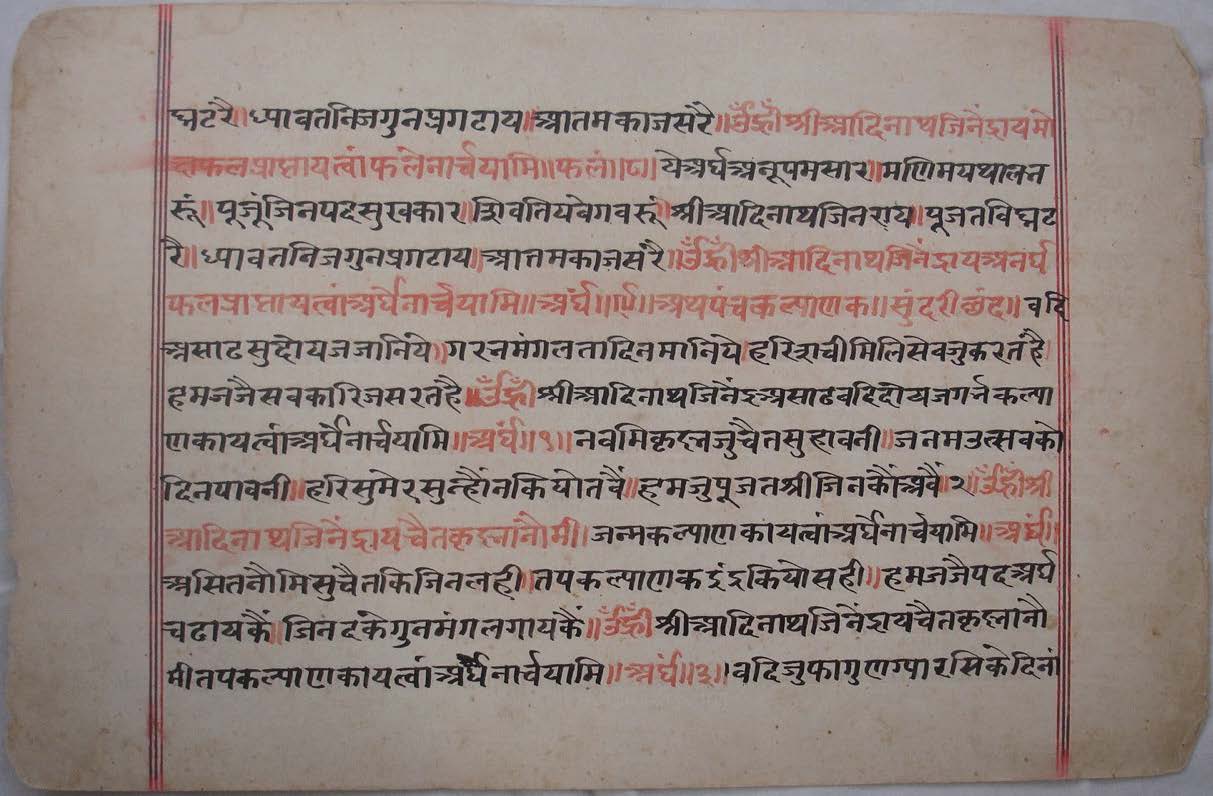 घ्नटरै॥ध्यावतनिजगुनप्रगटाय॥आतमकाजसंरै॥उँह्रीँश्रीआदिनाथजिनेंद्रायमो
क्षफलप्राप्तायत्वांफलेनार्चयामि॥फलं॥८॥येअर्घअनूपमसार॥मणिमयथालन
रूं॥पूजूंजिनपदसुखकार॥शिवतियवेगवरूं॥श्रीआदिनाथजिनराय॥पूजतविघ्नट
रै॥ध्यावतनिजगुनप्रगटाय॥आतमकाजसंरै॥उँह्रीँश्रीआदिनाथजिनेंद्रायअनर्घ
फलप्राप्तायत्वांअर्घेनार्चयामि॥अर्घं॥९॥अथपंचकल्याणक॥सुंदरीछंद॥वदि
असाढसुदोयजजानिये॥गरनमंगलतादिनमानिये॥हरिशचीमिलिसेवजुकरतहै॥
हमजजैसवकारिजसरतहै॥उँह्रीँश्रीआदिनाथजिनेंद्रअसाढवदिदोयजगर्नकल्या
णकायत्वांअर्घेनार्चयामि॥अर्घं॥१॥नवमिकृष्णजुचैतसुहावनी॥जनमउत्सवको
दिनपावनी॥हरिसुमेरसुन्हौंनकियोतवैं॥हमजुपूजतश्रीजिनकौंअवैं॥२॥उँह्रीँश्री
आदिनाथजिनेंद्रायचैतकृष्णनौमी॥जन्मकल्याणकायत्वांअर्घेनार्चेयामि॥अर्घं॥
असितनौमिसुचैतकिजिनलही॥तपकल्याणकइंद्रकियौसही॥हमजजैपदअर्घ
चढायकैं॥जिनढकेगुनमंगलगायकैं॥उँह्रीँश्रीआदिनाथजिनेंद्रायचैतकृष्णनौ
मीतपकल्याणकायत्वांअर्घेनार्चयामि॥अर्घं॥३॥वदिजुफागुणग्यारसिकेदिनां